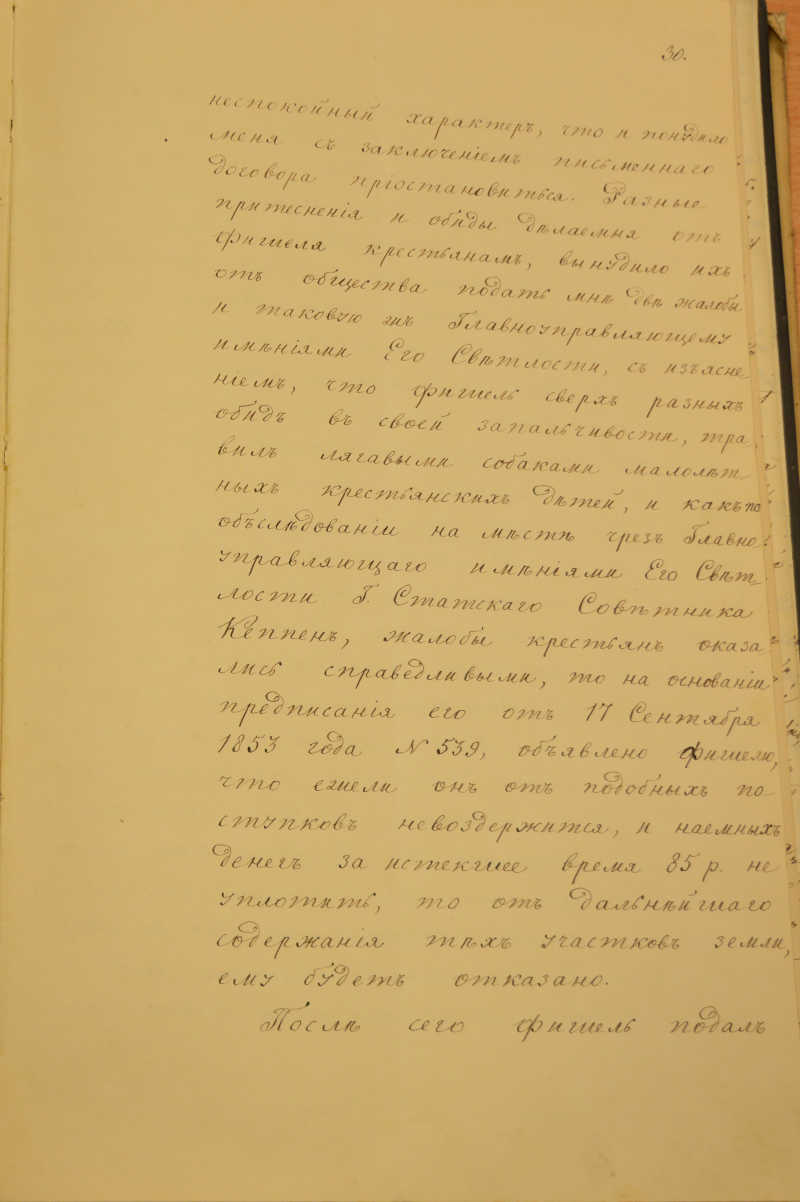 30.
неспокойный характеръ, что и понудило
меня съ заключеніемъ письменнаго
договора пріостановиться. Разные
притесненія и обиды дѣлаемыя отъ
Фишеля крестьянамъ, вынудило ихъ
отъ общества подать мнѣ двѣ жалобы
и таковую жъ Главноуправляющему
имѣніями Его Свѣтлости, съ изъясне
ніемъ, что Фишель сверхъ разныхъ
обидъ въ своей запальчивости, тра
вилъ лягавыми собаками малолѣт
ныхъ крестьянскихъ дѣтей, и какъ по
обслѣдованіи на мѣстѣ чрезъ Главно
управляющаго имѣніями Его Свѣт
лости Г. Статскаго Совѣтника
Кеппенъ, жалобы крестьянъ оказа
лись справедливыми, то на основаніи
предписанія его отъ 17 Сентября
1853 года № 539, объявлено Фишелю,
что ежели онъ отъ подобныхъ по
ступковъ невоздержится, и наемныхъ
денегъ за истекшее время 85 р. не
уплотитъ, то отъ дальнѣйшаго
содержанія тѣхъ участковъ земли,
ему будетъ отказано.
Послѣ сего Фишель подалъ